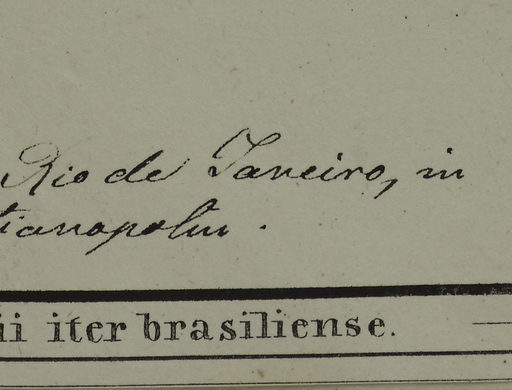 Rio de Janeiro, in
tianapolim.
ii iter brasiliense.